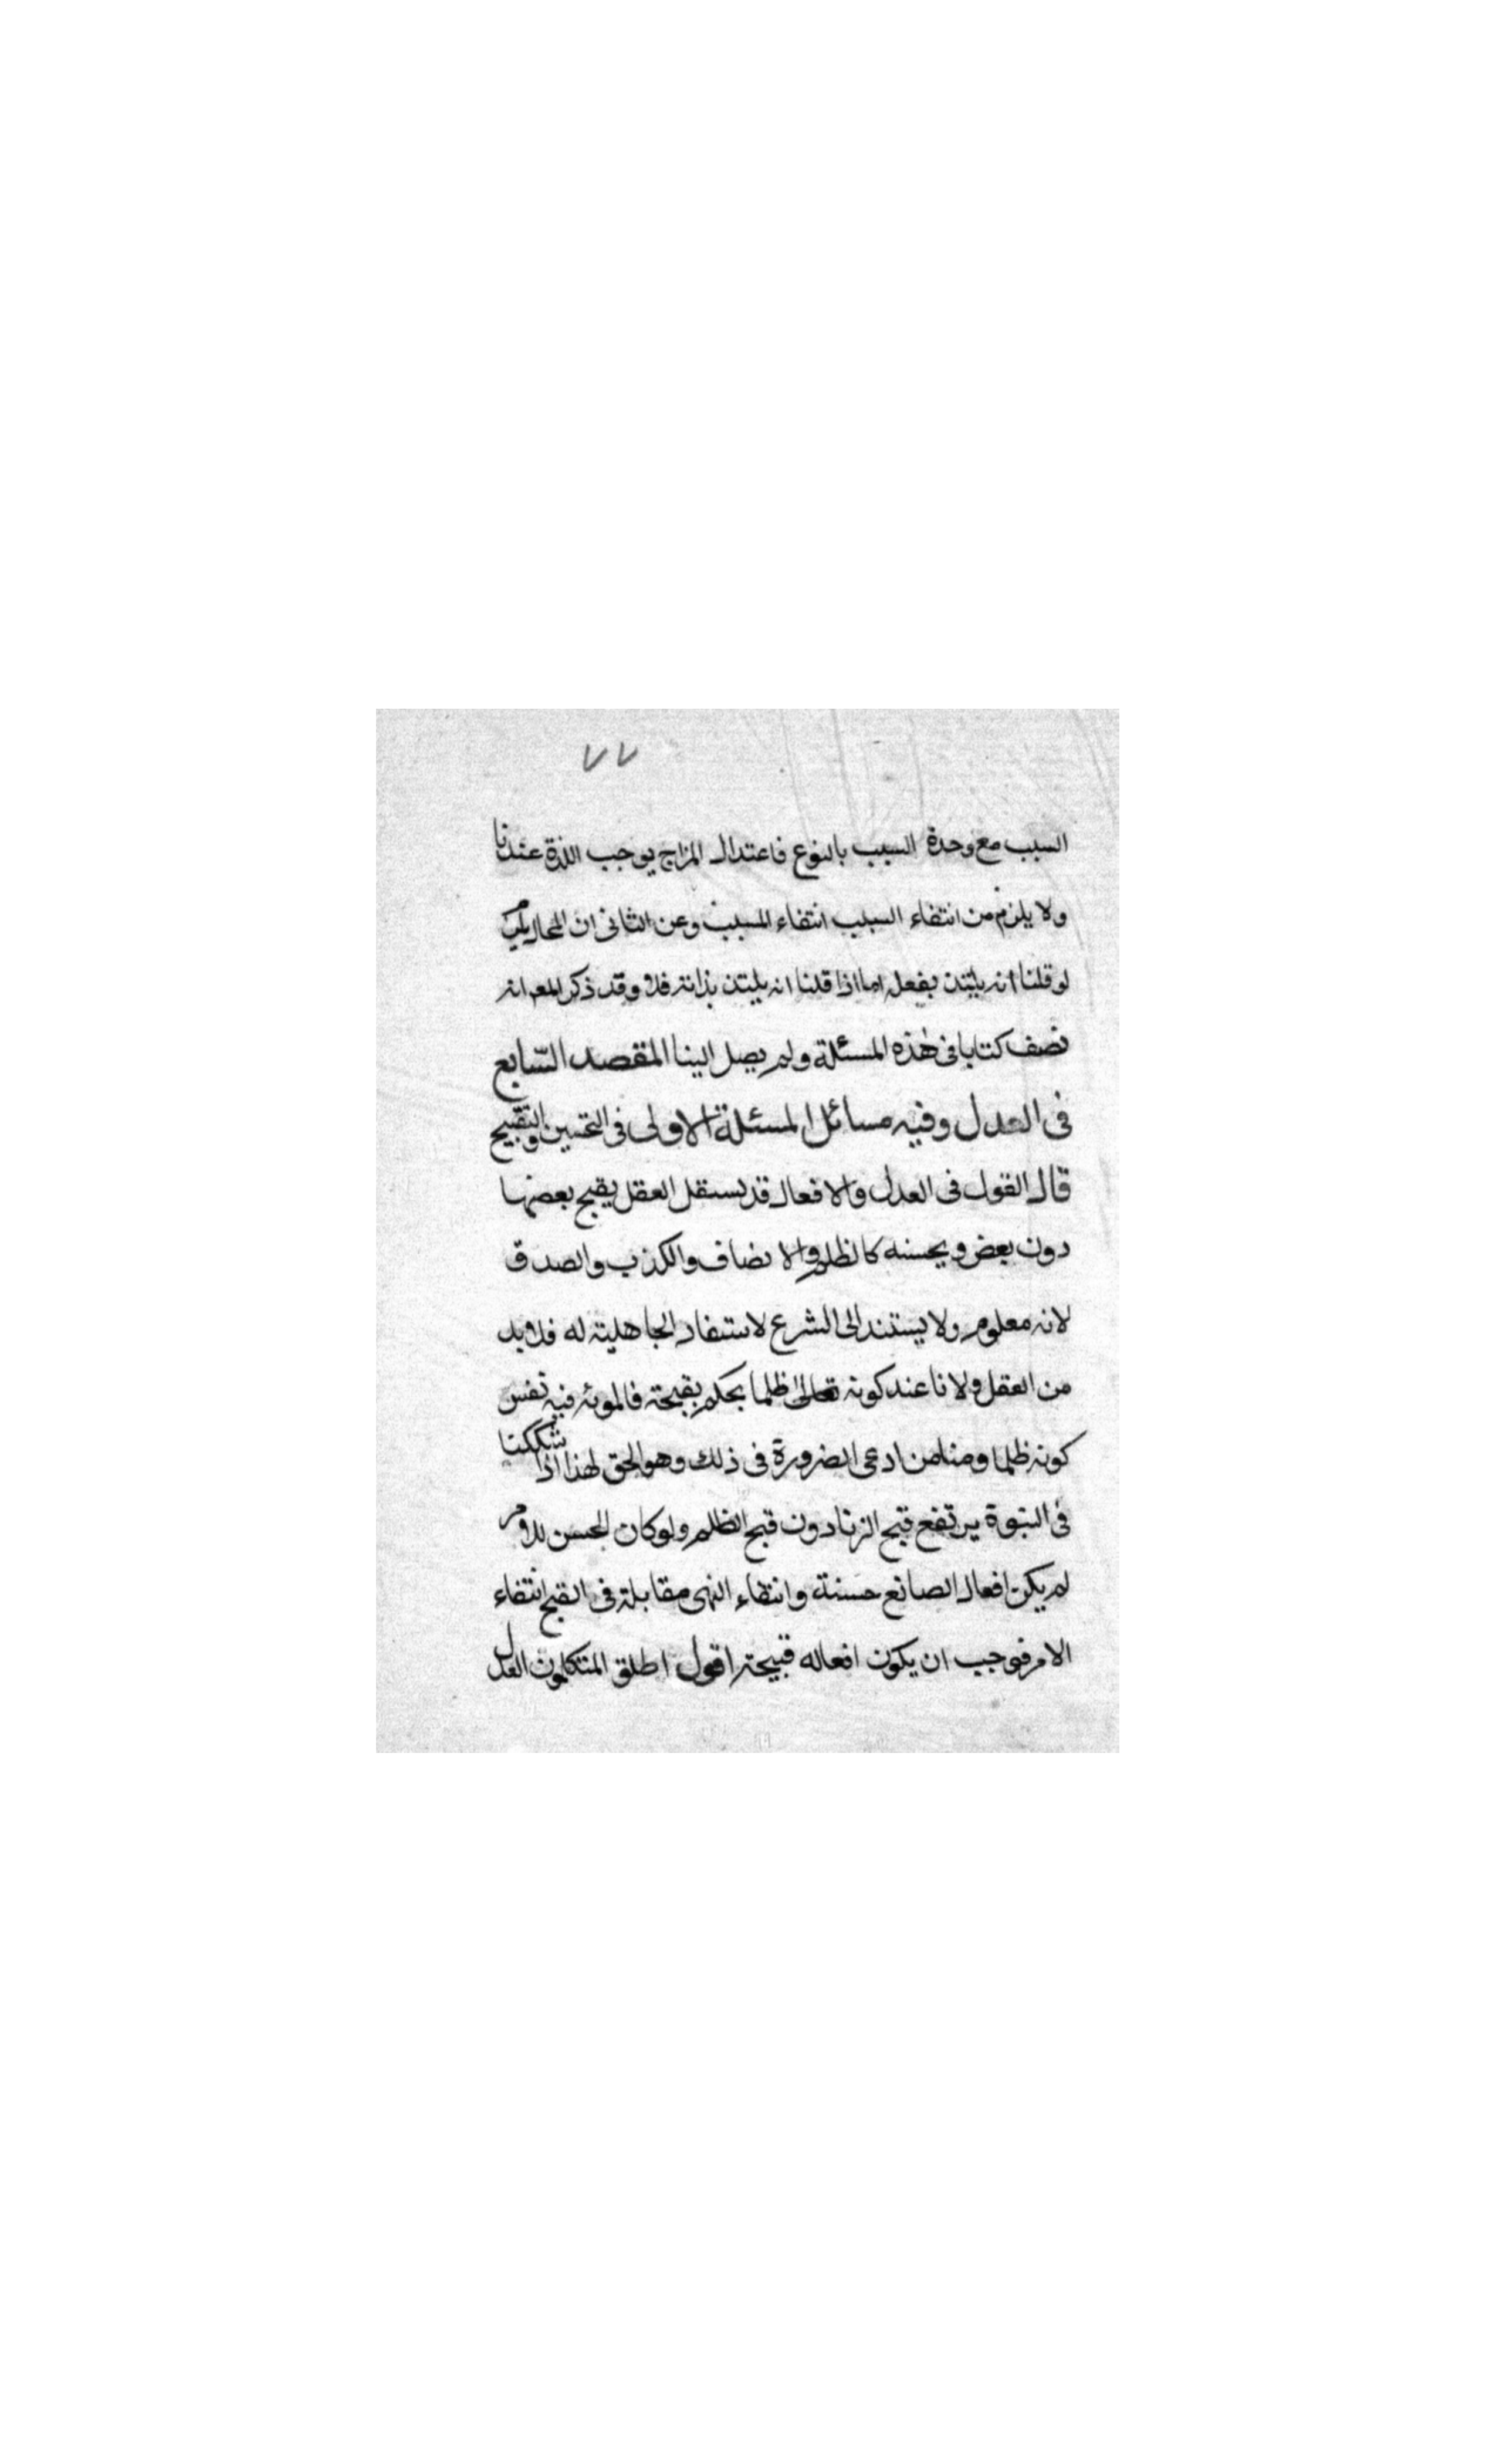 ٧٧
السبب مع وحدة السبب بالنوع فاعتدال المزاج يوجب اللذة عندنا
ولا يلزم من انتفاء السبب انتفاء المسبب وعن الثاني ان المحال يلزم
لو قلنا انه يلتذ بفعله اما اذا قلنا انه يلتذ بذاته فلا وقد ذكر المص انه
نصف كتابا في هذه المسئلة ولم يصل الينا المقصد السّابع
في العدل وفيه مسائل المسئلة الاولى في التحسين والتقبيح
قال القول في العدل والافعال قد يستقل العقل بقبح بعضها
دون بعض ويحسنه كالظلم والانصاف والكذب والصدق
لانه معلوم ولا يستند الى الشرع لاستنفاد الجاهلية له فلابد
من العقل ولانا عند كونه تعالى ظلما يحكم بقبحه فالموثر فيه نفس
كونه ظلما ومنا من ادعى الضرورة في ذلك وهو الحق لهذا اذا شككنا
في النبوة يرتفع قبح الزنا دون قبح الظلم ولو كان الحسن للامر
لم يكن افعال الصانع حسنة وانتفاء النهى مقابلة في القبح انتفاء
الامر فوجب ان يكون افعاله قبيحة اقول اطلق المتكلمون العدل